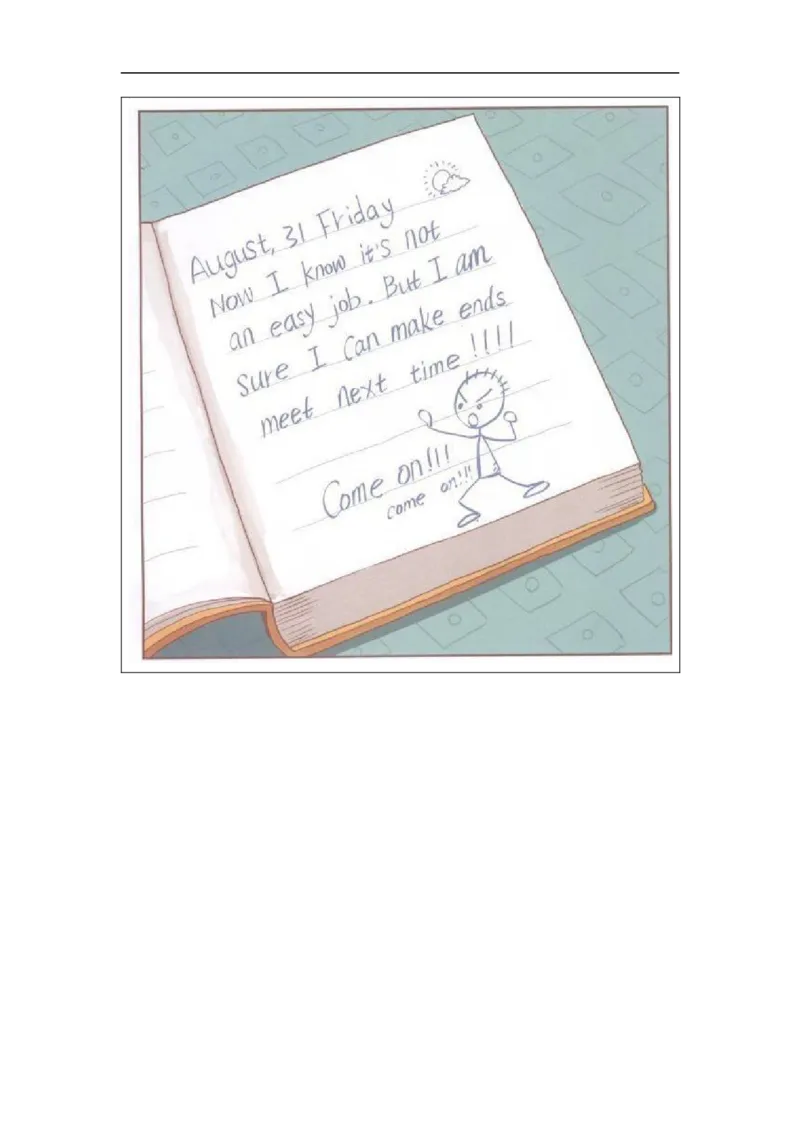 August, 31 Friday
Now I know it's not
an easy job. But I am
sure I can make ends
meet next time!!!!
Come on!!!
come on!!!